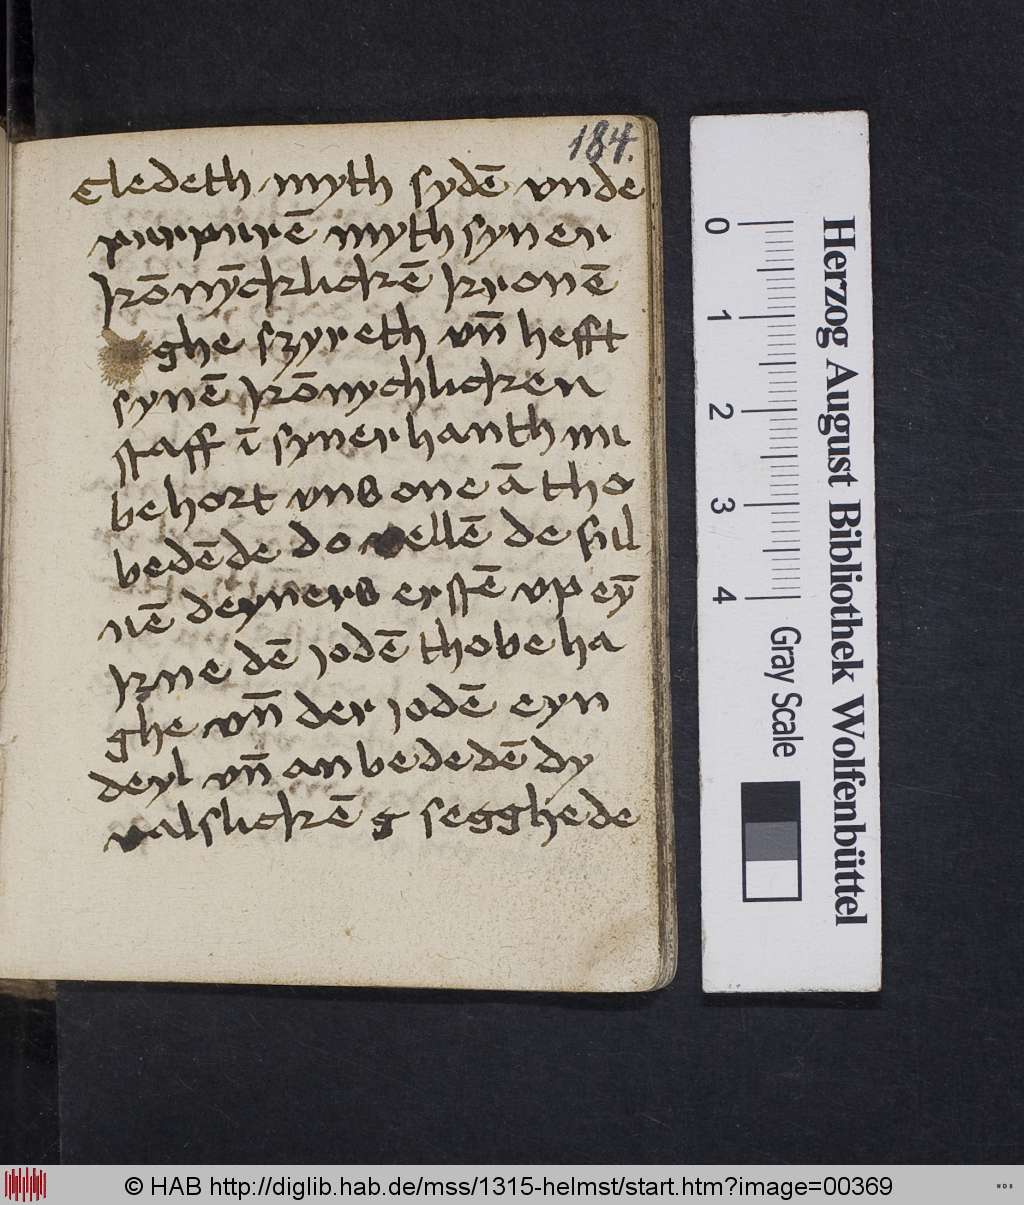 184.
cledeth myth sydē vnde
purpurē myth syner
krōnȳcklickē kronē
ghe szyreth vn̄ hefft
synē krōnychlicken
staff ī syner hanth nu
behort vns one ā tho
bedēde do vellē de sul
nē deyners erstē vp eȳ
kne dē jodē thobeha
ghe vn̄ der jodē eyn
deyl vn̄ anbededē dy
valslickē g segghede
Herzog August Bibliothek Wolfenbüttel
0 1 2 3 4
Gray Scale
© HAB http://diglib.hab.de/mss/1315-helmst/start.htm?image=00369